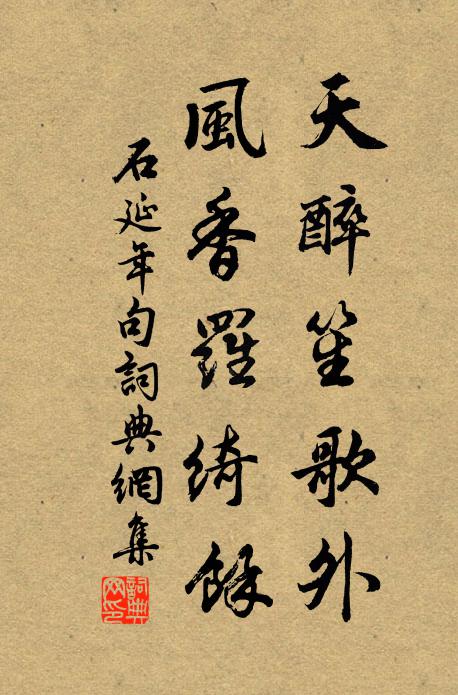 天醉笙歌外
風香羅綺餘
石延年句詞典網集
詞典網印